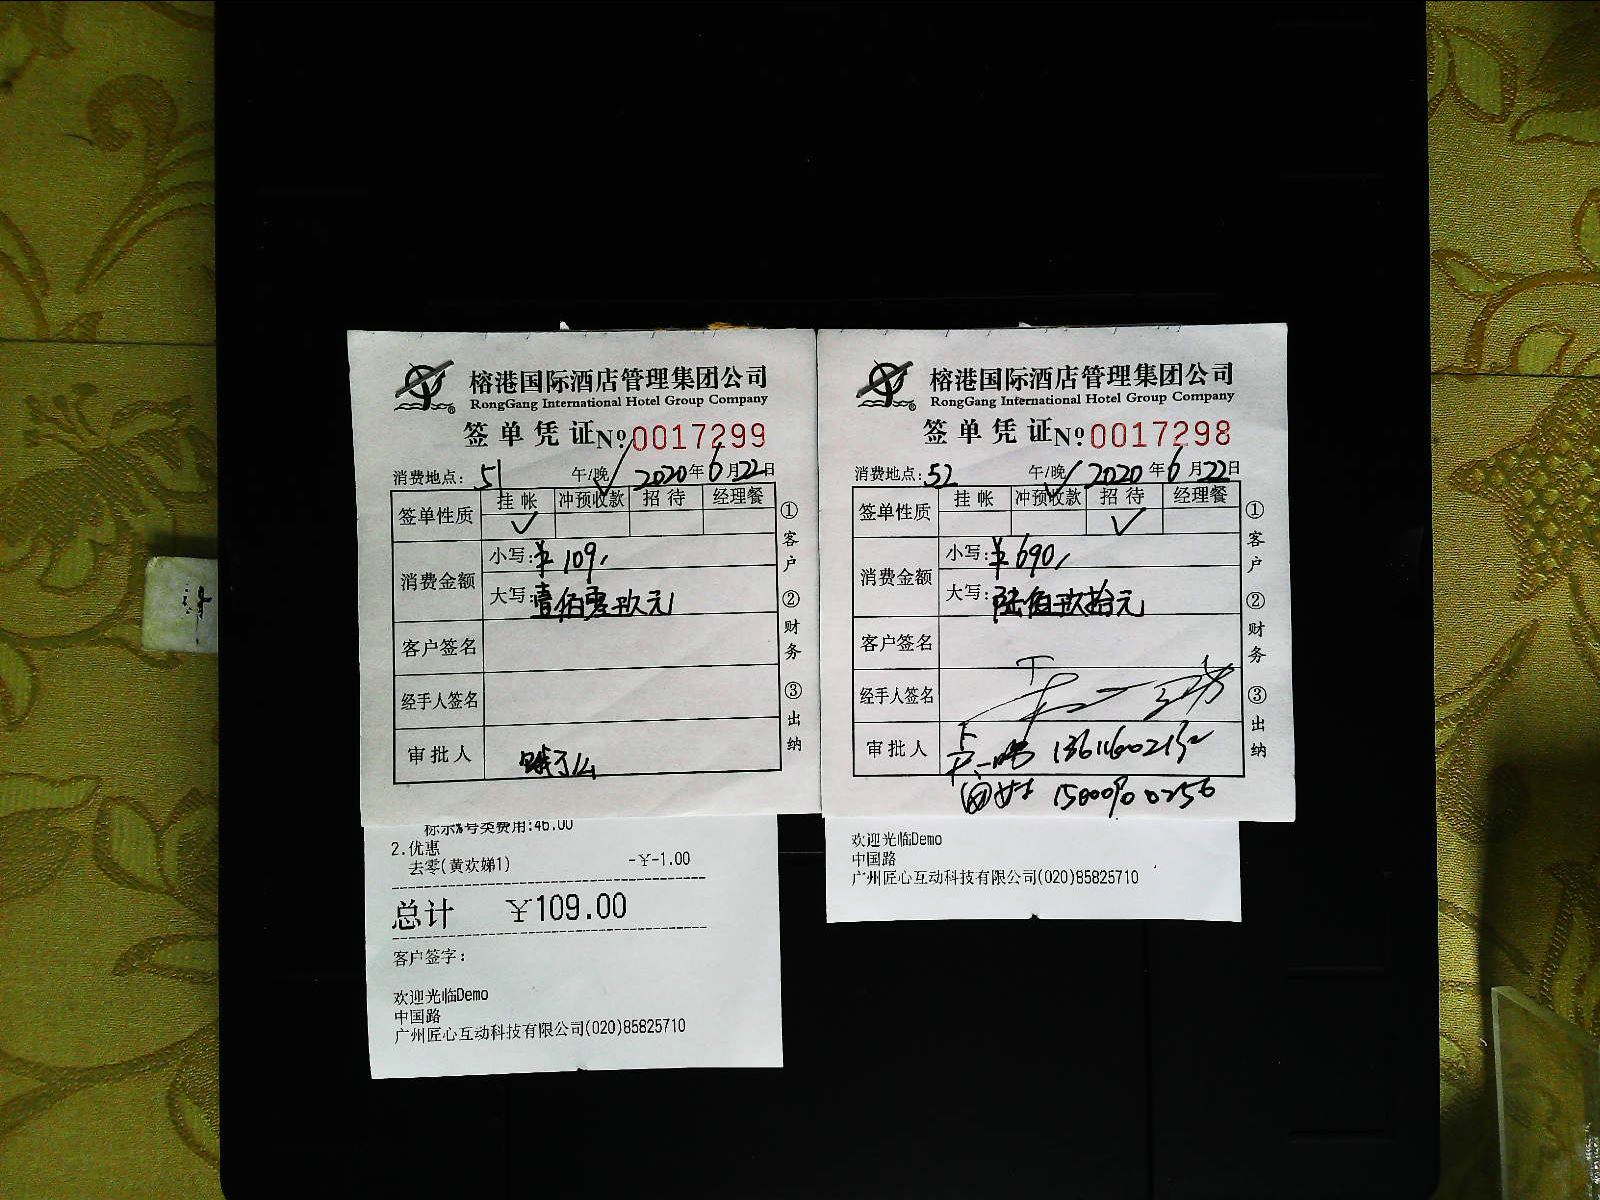 榕港国际酒店管理集团公司
RongGang International Hotel Group Company
签单凭证 No. 0017299
消费地点: 51 午/晚 2020年6月22日
签单性质 挂帐 冲预收款 招待 经理餐
✓
消费金额
小写: ¥109
大写: 壹佰零玖元
客户签名
经手人签名
审批人 饿了么
①客户 ②财务 ③出纳
标示%号类费用:46.00
2.优惠
去零(黄欢娣1) -¥-1.00
总计 ¥109.00
客户签字:
欢迎光临Demo
中国路
广州匠心互动科技有限公司(020)85825710
榕港国际酒店管理集团公司
RongGang International Hotel Group Company
签单凭证 No. 0017298
消费地点: 52 午/晚 2020年6月22日
签单性质 挂帐 冲预收款 招待 经理餐
✓
消费金额
小写: ¥690
大写: 陆佰玖拾元
客户签名
经手人签名
审批人
①客户 ②财务 ③出纳
欢迎光临Demo
中国路
广州匠心互动科技有限公司(020)85825710